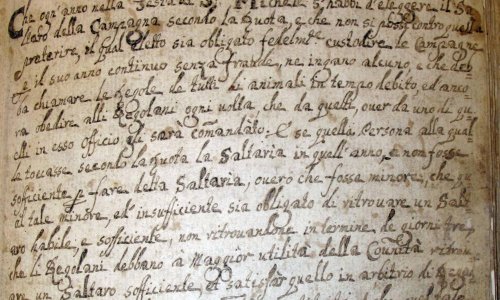 Che ogn'anno nella Festa di S. Michele s'habbi d'eleggere il Sal
taro della Campagna secondo la Ruota, e che non si possi contro quella
preterire, il qual eletto sia obligato fedelm.te custodire le Campagne
e il suo anno continuo senza fraude, ne ingano alcuno, e che deb=
ba chiamare le Regole de tutti di animali in tempo debito, ed anco
ra obedire alli Regolani ogni volta che da quelli, over da uno di que
lli in esso officio li sarà comandato. E se quella Persona alla qual
le toccasse secondo la Ruota la Saltaria in quell'anno, e non fosse
sofficiente à fare della Saltaria, overo che fosse minore, che qu
al tale minore, ed insufficiente sia obligato di ritrovare un Salt
aro habile, e sofficiente, non ritrovandone in termine de giorni tre,
che li Regolani debbano a Maggior utilità della Comunità ritrov
are un Saltaro sofficiente, et satisfar quello in arbitrio di